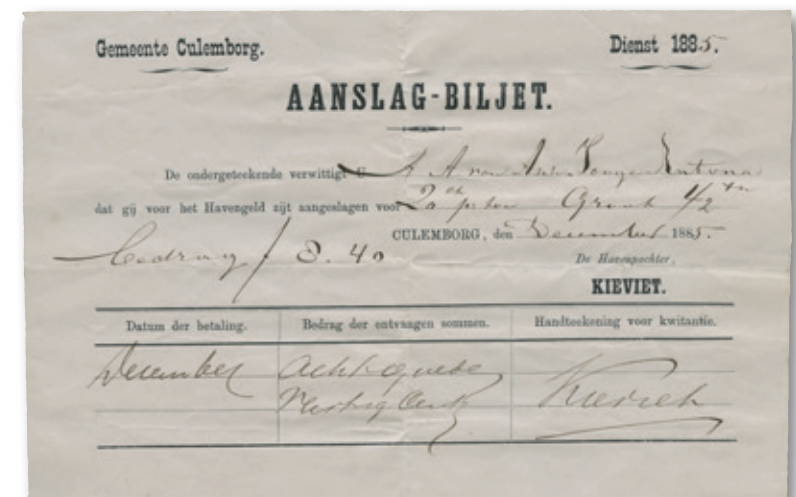 Gemeente Culemborg. Dienst 1885.
AANSLAG-BILJET.
De ondergeteekende verwittigt U A A van
dat gij voor het Havengeld zijt aangeslagen voor 20 ct per ton Groot 1/2 ton
CULEMBORG, den December 1885.
Bedrag f 8.40
De Havenpachter,
KIEVIET.
Datum der betaling. Bedrag der ontvangen sommen. Handteekening voor kwitantie.
December Acht guld Kieviet
Veertig Cent